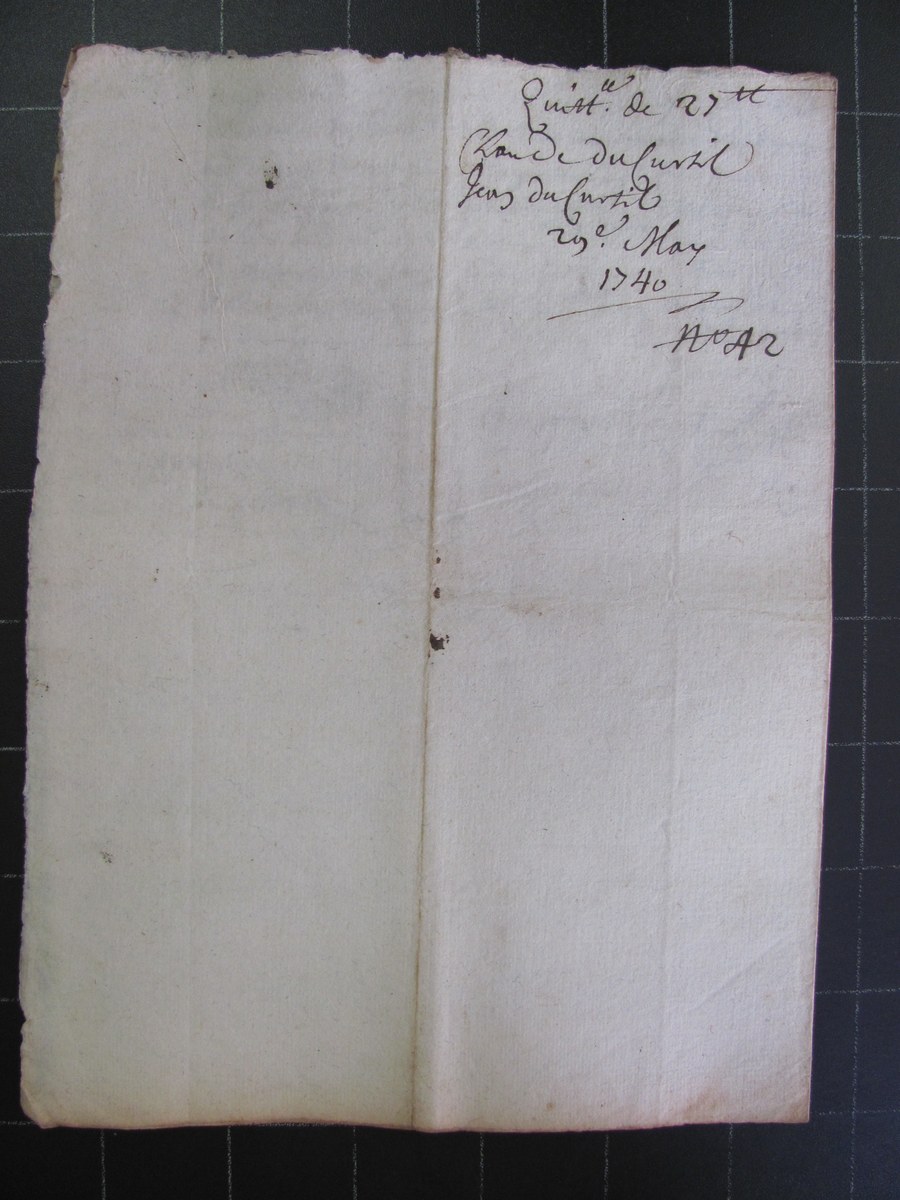 Quitt.ce de 27 tt
Claude du Curtil
Jean du Curtil
29e. May
1740
No 42